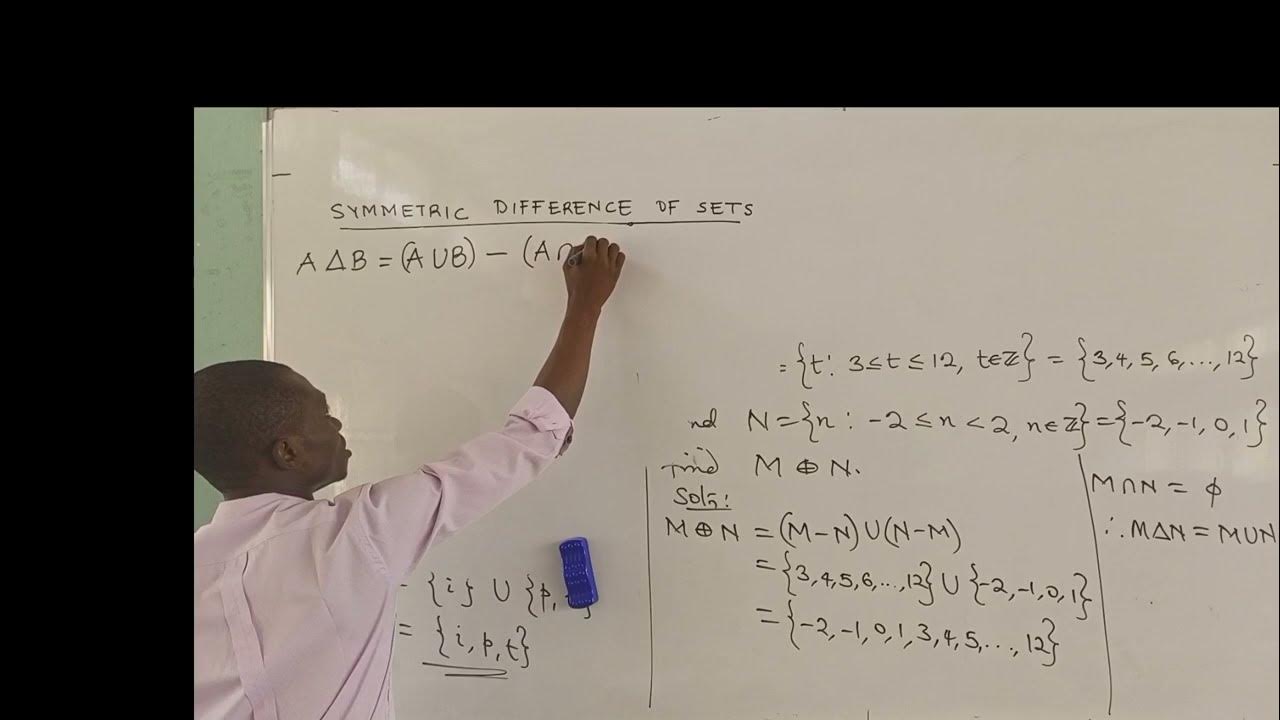 SYMMETRIC DIFFERENCE OF SETS
A Δ B = (A ∪ B) − (A ∩
= {t : 3 ≤ t ≤ 12, t∈ℤ} = {3, 4, 5, 6, ..., 12}
nd N = {n : -2 ≤ n < 2, n∈ℤ} = {-2, -1, 0, 1}
find M ⊕ N.
Soln:
M ⊕ N = (M − N) ∪ (N − M)
= {3, 4, 5, 6, ..., 12} ∪ {-2, -1, 0, 1}
= {-2, -1, 0, 1, 3, 4, 5, ..., 12}
M ∩ N = ϕ
∴ MΔN = M ∪ N
= {i} ∪ {p,
= {i, p, t}